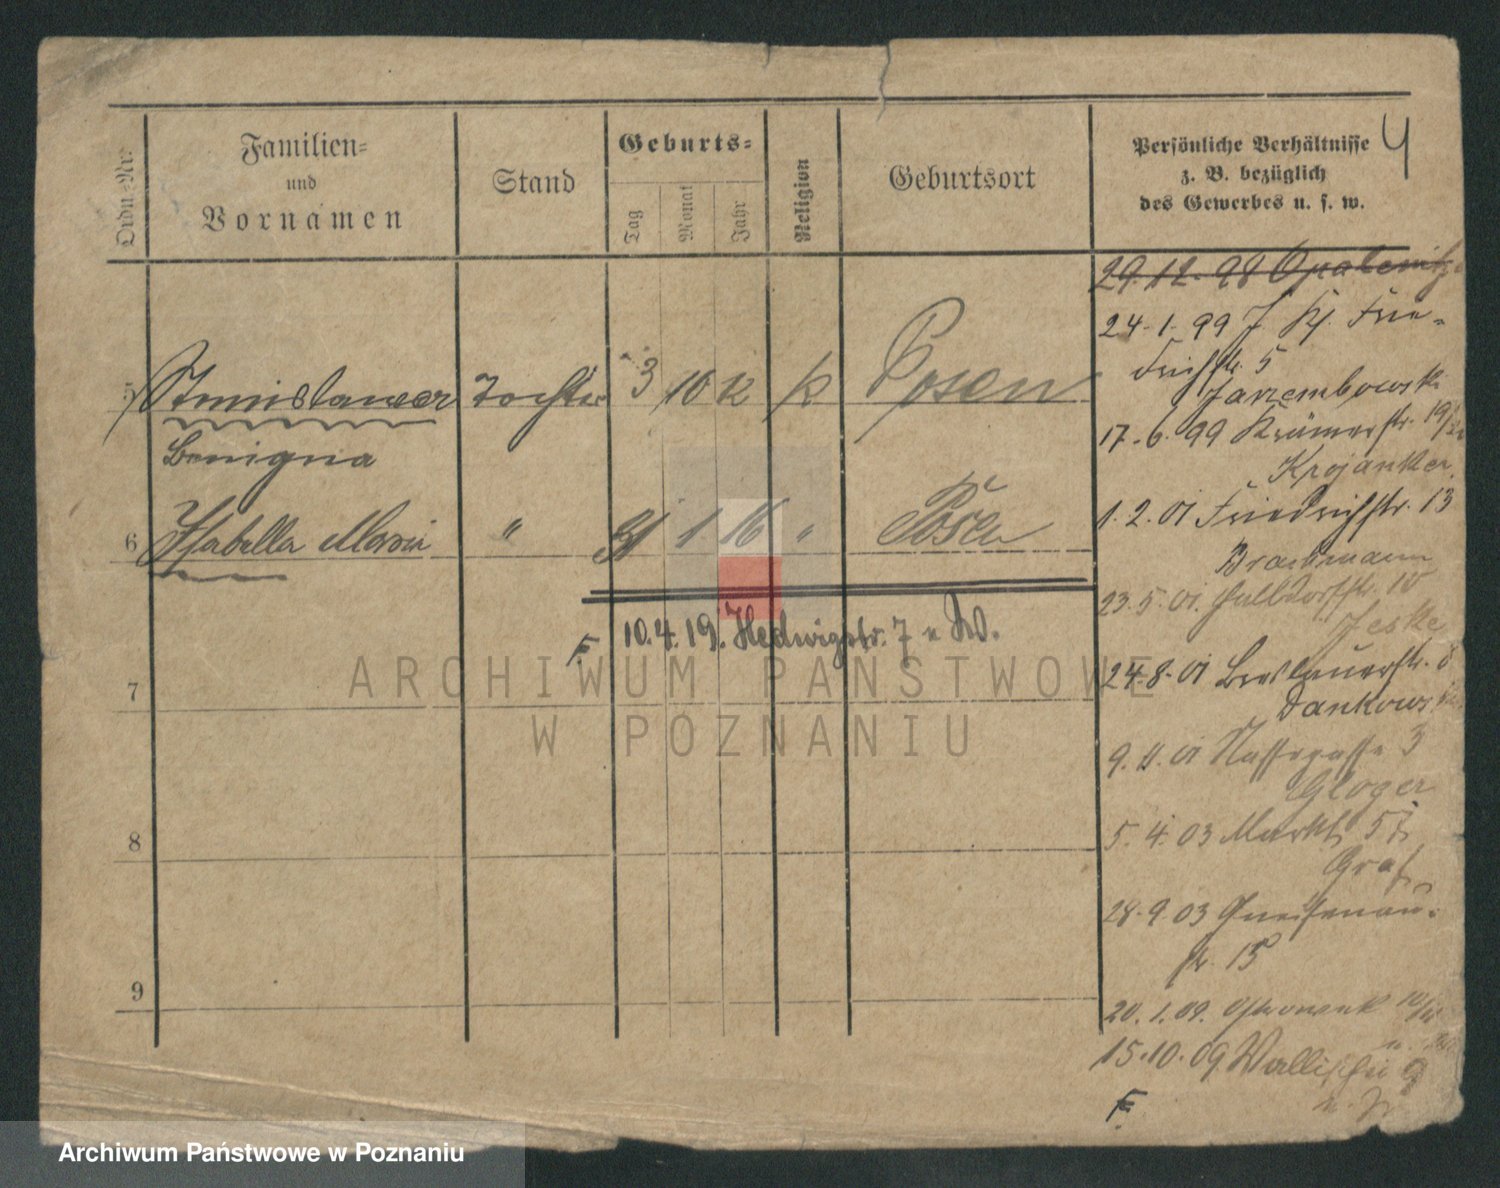 4
Ordn.-Nr.
Familien-
und
Vornamen
Stand
Geburts-
Tag
Monat
Jahr
Religion
Geburtsort
Persönliche Verhältnisse
z. B. bezüglich
des Gewerbes u. s. w.
29.12.98 Opalenitza
24.1.99 Frie-
drichstr. 5
Jarzembowski
17.6.99 Krämerstr. 19/20
Krojanker
1.2.01 Friedrichstr. 13
Brackmann
23.5.01 Halldorfstr. 10
Jeske
24.8.01 Breslauerstr.
Dankows
9.11.01 Nassegasse 3
Gloger
5.4.03 Markt 5
Graf
28.9.03 Gneisenau-
str. 15
20.1.09. Ostrowek 10/11
15.10.09 Wallischei 9
F.
5 Stanislawa Tochter 3 10 12 k Posen
Benigna
6 Isabella Maria " 31 1 16 " Posen
F. 10.4.19. Hedwigstr. 7
7
8
9
ARCHIWUM PAŃSTWOWE
W POZNANIU
Archiwum Państwowe w Poznaniu